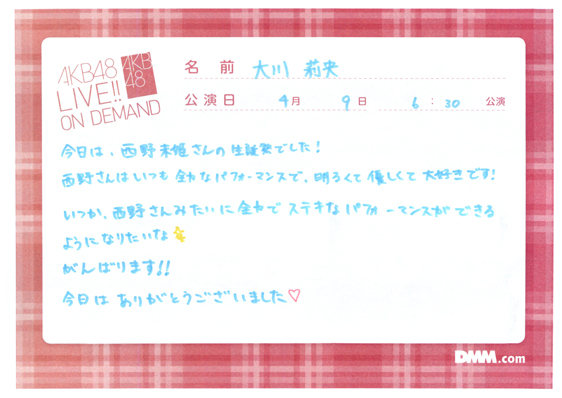 AKB48
LIVE!!
ON DEMAND
AKB
48
名 前 大川 莉央
公演日 4月 9日 6:30 公演
今日は、西野未姫さんの生誕祭でした!
西野さんはいつも全力なパフォーマンスで、明るくて優しくて大好きです!
いつか、西野さんみたいに全力でステキなパフォーマンスができる
ようになりたいな
がんばります!!
今日はありがとうございました♡
DMM.com